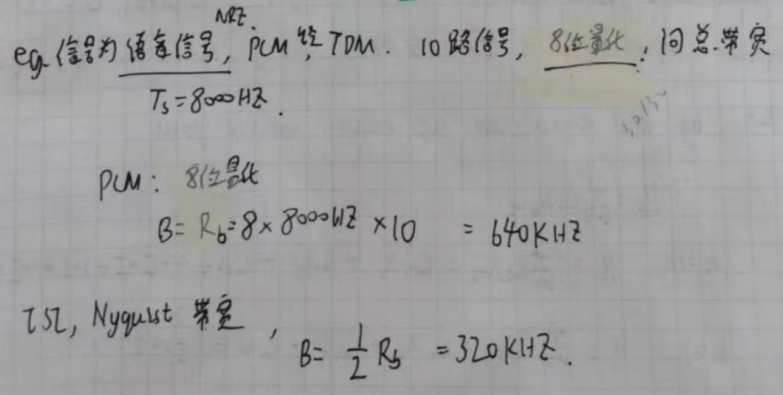 NRZ.
eg. 信号为语音信号, PCM 经 TDM. 10路信号, 8位量化, 问总带宽
Ts=8000HZ.
PCM: 8位量化
B= Rb=8×8000HZ×10 = 640KHZ
ISI, Nyquist 带宽,
B= 1/2 Rb =320KHZ.